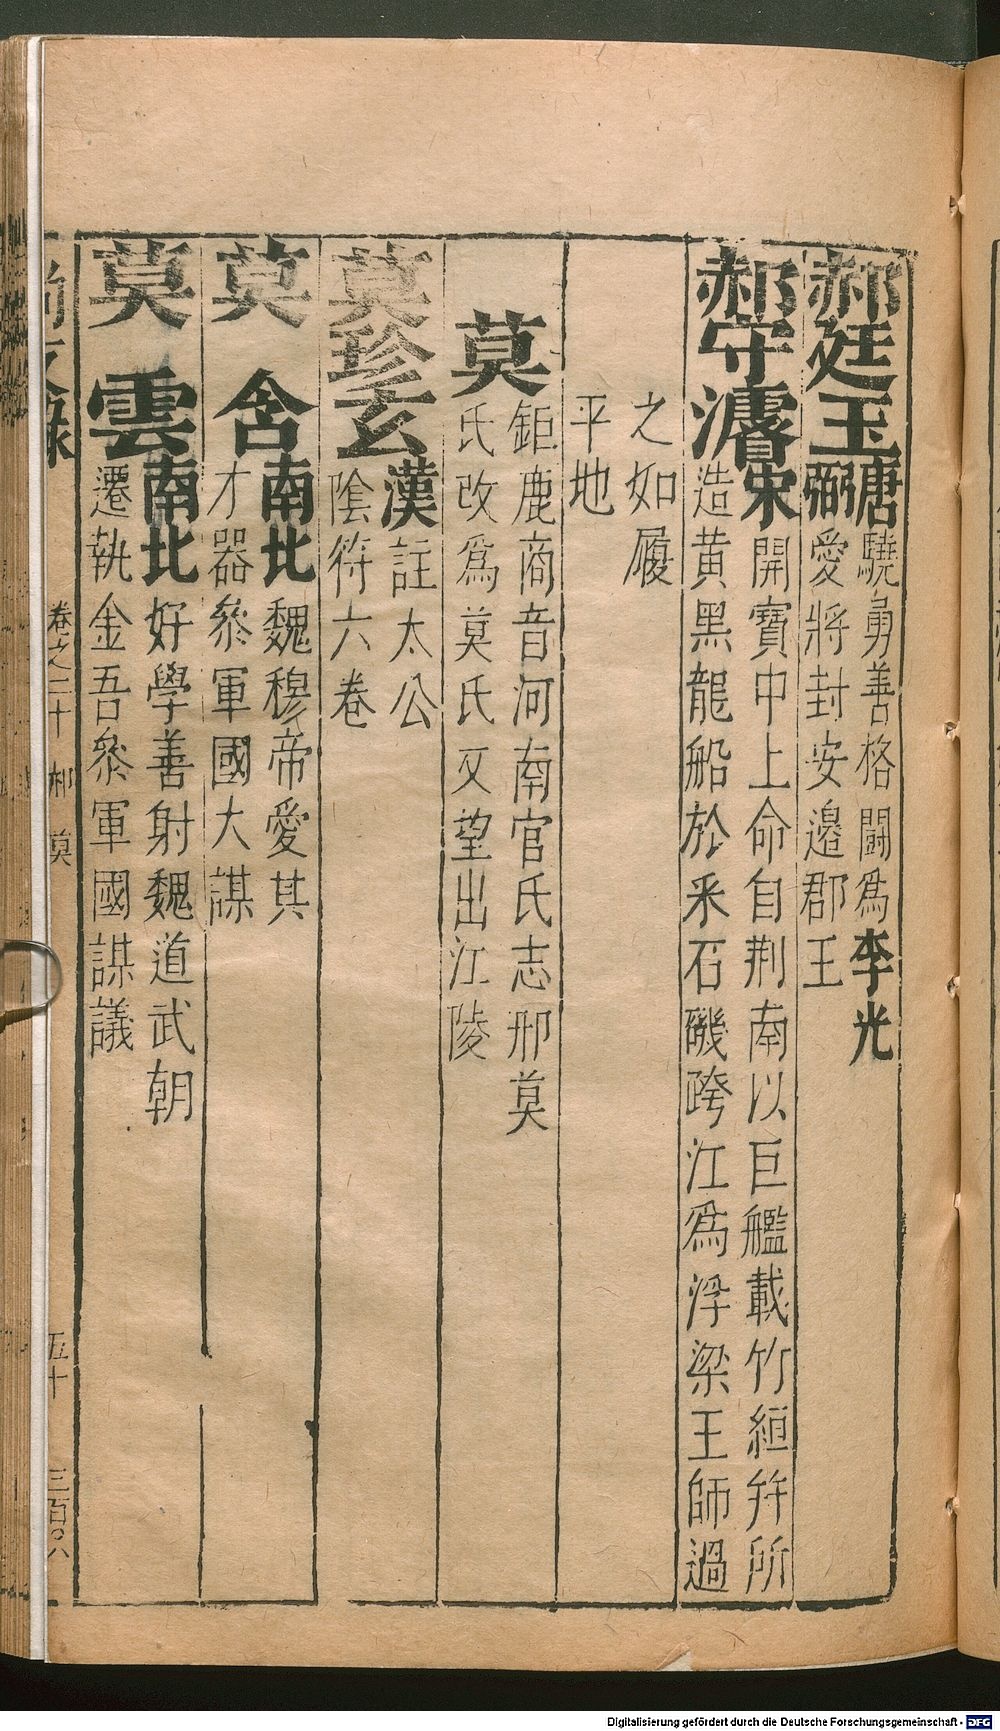 郝廷玉唐驍勇善格闘爲李光
弼愛將封安邊郡王
郝守濬宋開寶中上命自荆南以巨艦載竹絙并所
造黃黑龍船於采石磯跨江爲浮梁王師過
之如履
平地
莫鉅鹿商音河南官氏志邢莫
氏改爲莫氏又望出江陵
莫珍玄漢註太公
陰符六卷
莫含南北魏穆帝愛其
才器參軍國大謀
莫雲南北好學善射魏道武朝
遷執金吾參軍國謀議
卷之二十 郝 莫 五十 三百○八
Digitalisierung gefördert durch die Deutsche Forschungsgemeinschaft - DFG